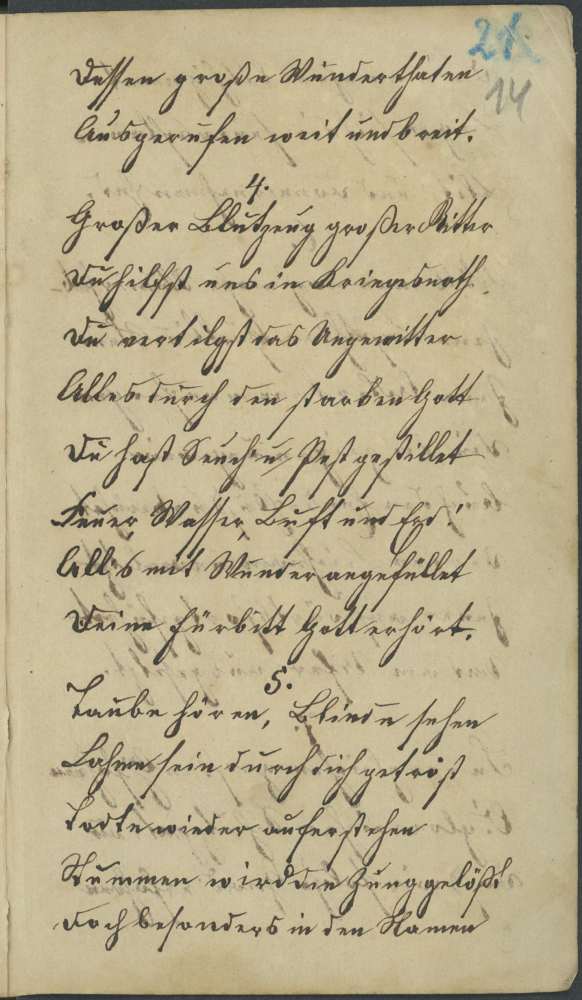 21.
14
Dessen große Wunderthaten
Ausgerufen weit und breit.
4.
Großer Blutzeug großer Ritter
Du hilfst uns in Kriegesnoth
Du vertilgst das Ungewitter
Alles durch den starken Gott
Du hast Seuch u Pest gestillet
Feuer, Wasser, Luft und Erd!
All's mit Wunder angefüllet
Deine Fürbitt Gott erhört.
5.
Taube hören, Blinde sehen
Lahme sein durch dich getröst
Todte wieder auferstehen
Stummen wird die Zung gelößt
Doch besonders in den Namen